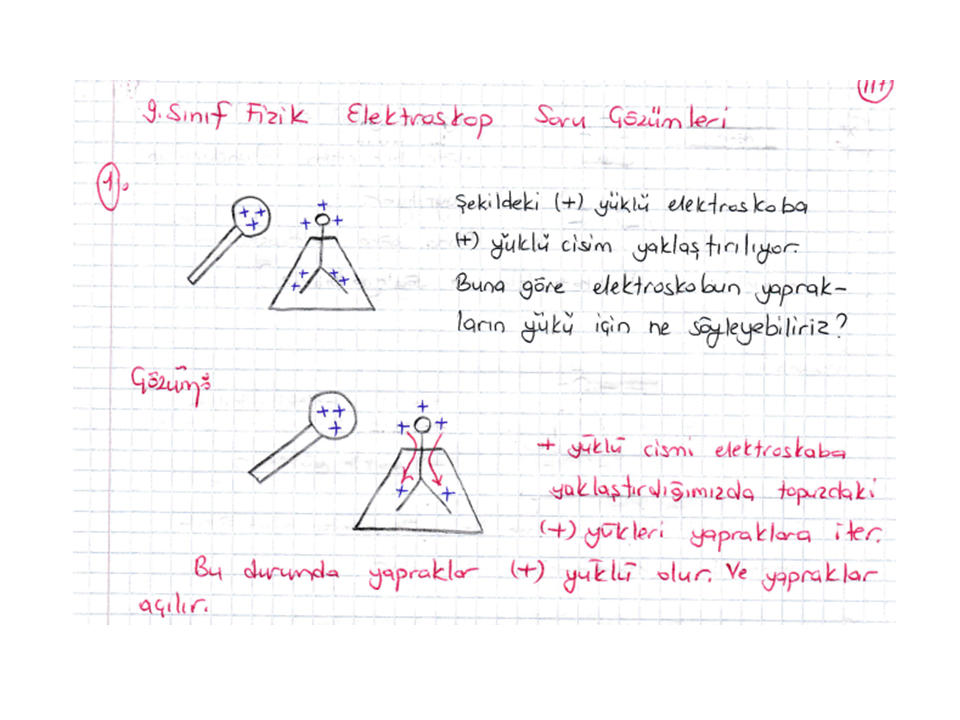 117
9. Sınıf Fizik Elektroskop Soru Gözümleri
1.
Şekildeki (+) yüklü elektroskoba
(+) yüklü cisim yaklaştırılıyor.
Buna göre elektroskobun yaprak-
ların yükü için ne söyleyebiliriz?
+ + +
+ + +
+ + + +
Gözüm:
+ + +
+ + +
+ +
+ yüklü cismi elektroskaba
yaklaştırdığımızda topuzdaki
(+) yükleri yapraklara iter.
Bu durumda yapraklar (+) yüklü olur. Ve yapraklar
açılır.